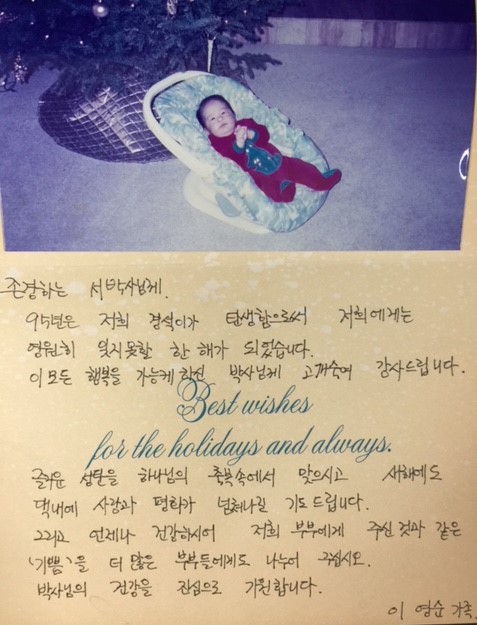 존경하는 서박사님께.
95년은 저희 경석이가 탄생함으로써 저희에게는
영원히 잊지못할 한 해가 되었습니다.
이 모든 행복을 가능케 하신 박사님께 고개숙여 감사드립니다.
Best wishes
for the holidays and always.
즐거운 성탄을 하나님의 축복속에서 맞으시고 새해에도
댁내에 사랑과 평화가 넘쳐나길 기도드립니다.
그리고 언제나 건강하시어 저희 부부에게 주신것과 같은
'기쁨'을 더 많은 부부들에게도 나누어 주십시오.
박사님의 건강을 진심으로 기원합니다.
이 영순 가족.